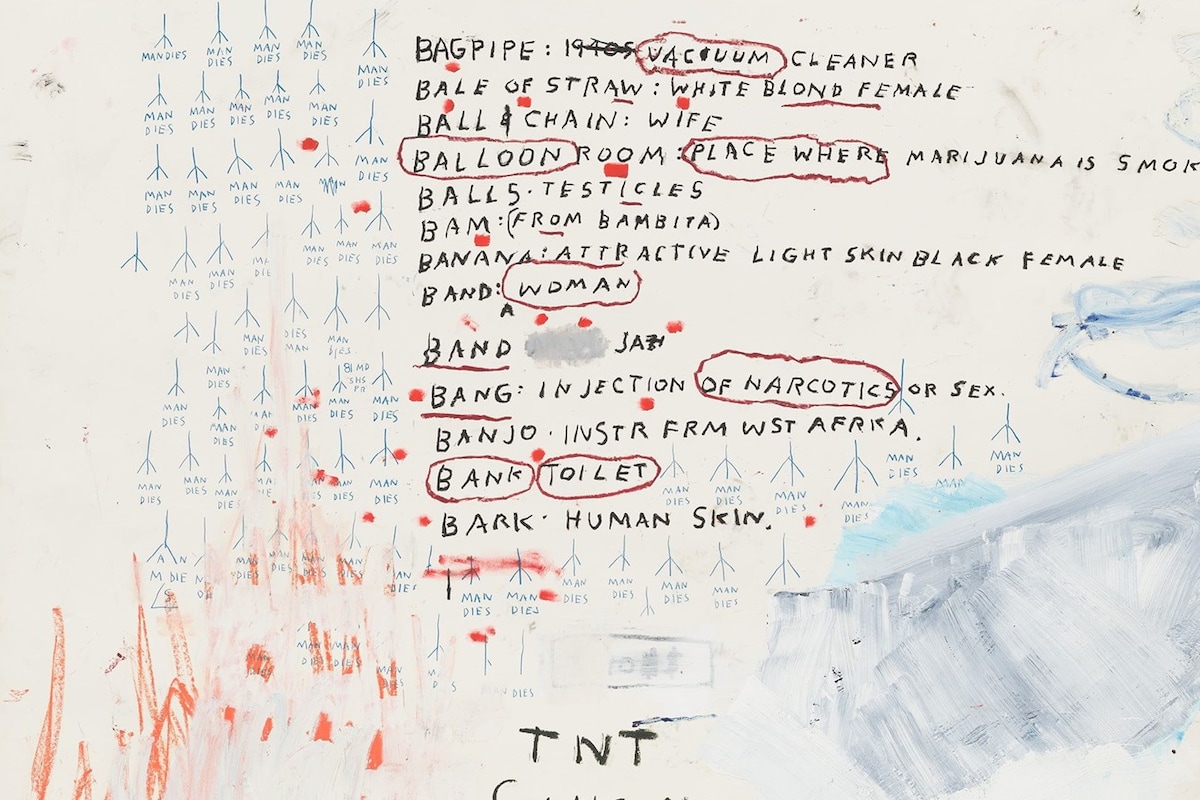 MAN DIES
MAN
DIES
MAN
DIES
MAN
DIES
MAN
DIES
MAN
DIES
MAN
DIES
MAN
DIES
MAN
DIES
MAN
DIES
MAN
DIES
MAN
DIES
MAN
DIES
MAN
DIES
MAN
DIES
MAN
MAN
DIES
MAN
DIES
MAN
DIES
MAN
DIES
MAN
DIES
DIES
MAN
MAN
DIES
MAN
DIES
MAN
DIES
MAN
DIES
MAN
DIES
MAN
DIES
MAN
DIES
MAN
DIES
BAGPIPE: 1940S VACUUM CLEANER
BALE OF STRAW: WHITE BLOND FEMALE
BALL & CHAIN: WIFE
BALLOON ROOM: PLACE WHERE MARIJUANA IS SMOK
BALLS. TESTICLES
BAM: (FROM BAMBITA)
BANANA: ATTRACTIVE LIGHT SKIN BLACK FEMALE
BAND: WOMAN
A
BAND JAZ
BANG: INJECTION OF NARCOTICS OR SEX.
BANJO. INSTR FRM WST AFRKA.
BANK TOILET
BARK. HUMAN SKIN.
MAN
DIES
MAN
DIES
MAN
DIES
MAN
DIES
MAN
DIES
MAN
DIES
MAN
DIES
MAN
DIES
MAN
DIES
MAN
DIES
MAN
DIES
MAN DIES
TNT